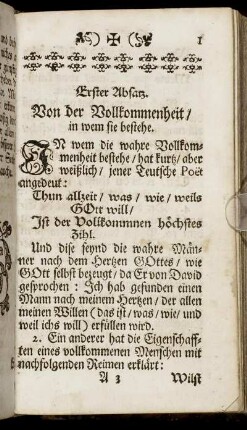 1
Erster Absatz.
Von der Vollkommenheit /
in wem sie bestehe.
IN wem die wahre Vollkom-
menheit bestehe / hat kurtz / aber
weißlich / jener Teutsche Poët
angedeut:
Thun allzeit / was / wie / weils
GOtt will /
Ist der Vollkommnen höchstes
Zihl.
Und dise seynd die wahre Män-
ner nach dem Hertzen GOttes / wie
GOtt selbst bezeugt / da Er von David
gesprochen: Ich hab gefunden einen
Mann nach meinem Hertzen / der allen
meinen Willen (das ist / was / wie / und
weil ichs will) erfüllen wird.
2. Ein anderer hat die Eigenschaff-
ten eines vollkommenen Menschen mit
nachfolgenden Reimen erklärt:
A 3 Wilst